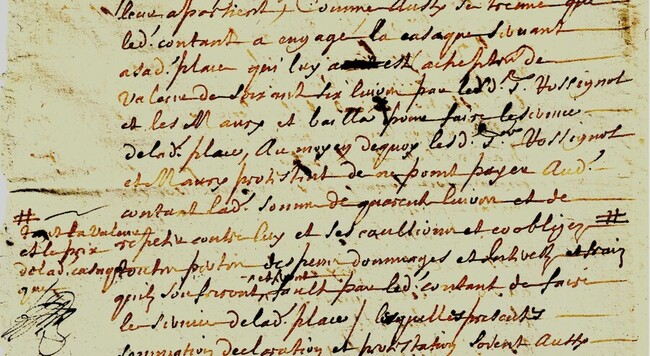 leur apartient Comme Aussy se treuve que
led. contant a engagé la casaque sievant
asad. place qui luy est achepter de
valeur de soixant six livres par led. Sr. Rossignol
et les Maury et bailla pour faire le service
delad. place, Au moyen dequoy lesd. Rossignol
et Maury protestent de ne point payer Aud.
contant lad. somme de quarent livres et de
repetter contre luy et ses cautions et cobligez #
toutes pertes despens dommages et Interests et frais
quilz souffriront et par fault par led. contant de faire
le service delad. place / lesquelles presents
sommation declaration et protestation soient Aussy
# tant la valeur
et le prix
delad. casaque
que